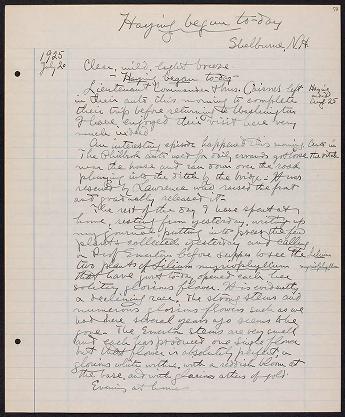 Haying began to-day
Shelburne, N.H.
1925
July 20
Clear, mild, light breeze.
- Haying began to-day -
Lieutenant Commander & Mrs. Cairnes left
in their auto this morning to complete
their trip before returning to Washington
I have enjoyed their visit here very
much indeed.
An interesting episode happened this morning. Auto in
The Philbrook auto used for daily errands got loose the ditch
near the house and ran down over the road,
plunging into the ditch by the bridge. It was
rescued by Lawrence who raised the front
and gradually released it.
The rest of the day I have spent at
home, resting from yesterday, writing up
my journal, putting into press the few
plants collected yesterday and calling
on Prof. Emerton before supper to see the Lilium
two plants of Lilium myriophyllum myriophyllum
that have just today opened each one
solitary glorious flower. It is evidently
a declining race. The strong stems and
numerous glorious flowers such as we
had here several years ago seems to be
gone. The Emerton stems are very small
and each has produced one single flower
but that flower is absolutely perfect, a
glorious white within, with a reddish bloom at
the base, and with glorious anthers of gold.
Evening at home.